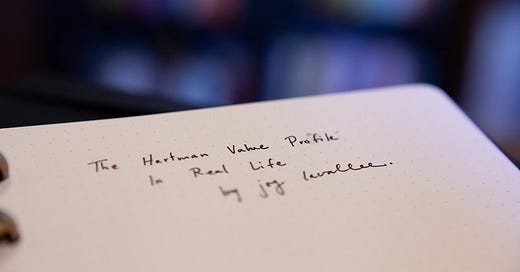 The Hartman Value Profile
In Real Life
by joy lavallee.